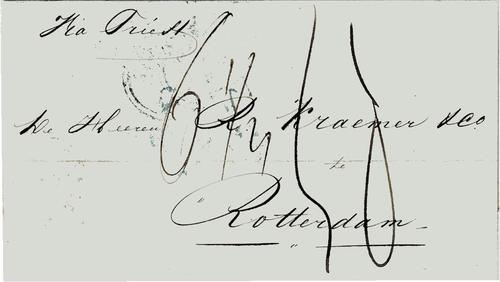 Via Triest
De Heeren Ry Kraemer & Co
te
Rotterdam